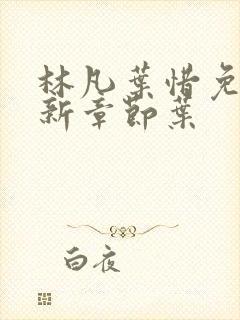 林凡葉惜免
新章節葉
白夜